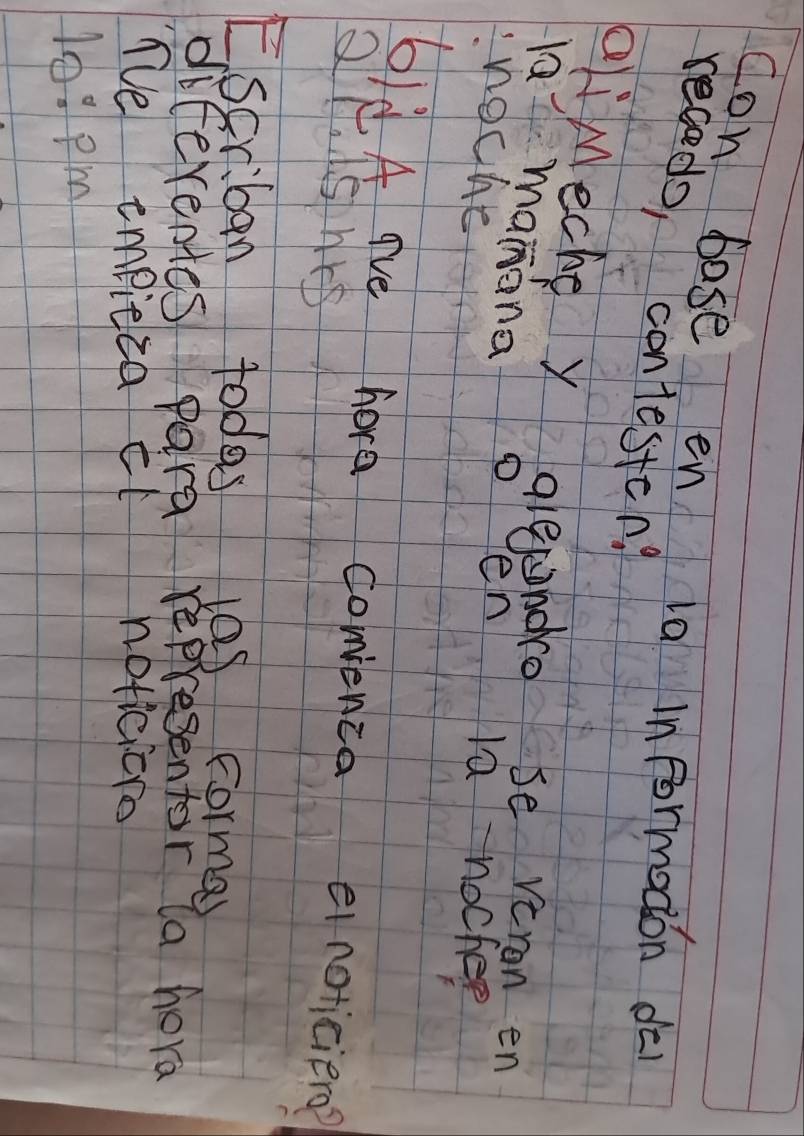 Con base en la información del
recado, contesten:
a) ¿Meche y alejandro se veran en
la mañana o en la noche?
: noche
b) ¿A que hora comienza el noticiero?
Escriban todas las formas
diferentes para representar la hora
que empieza el noticiero
10: pm